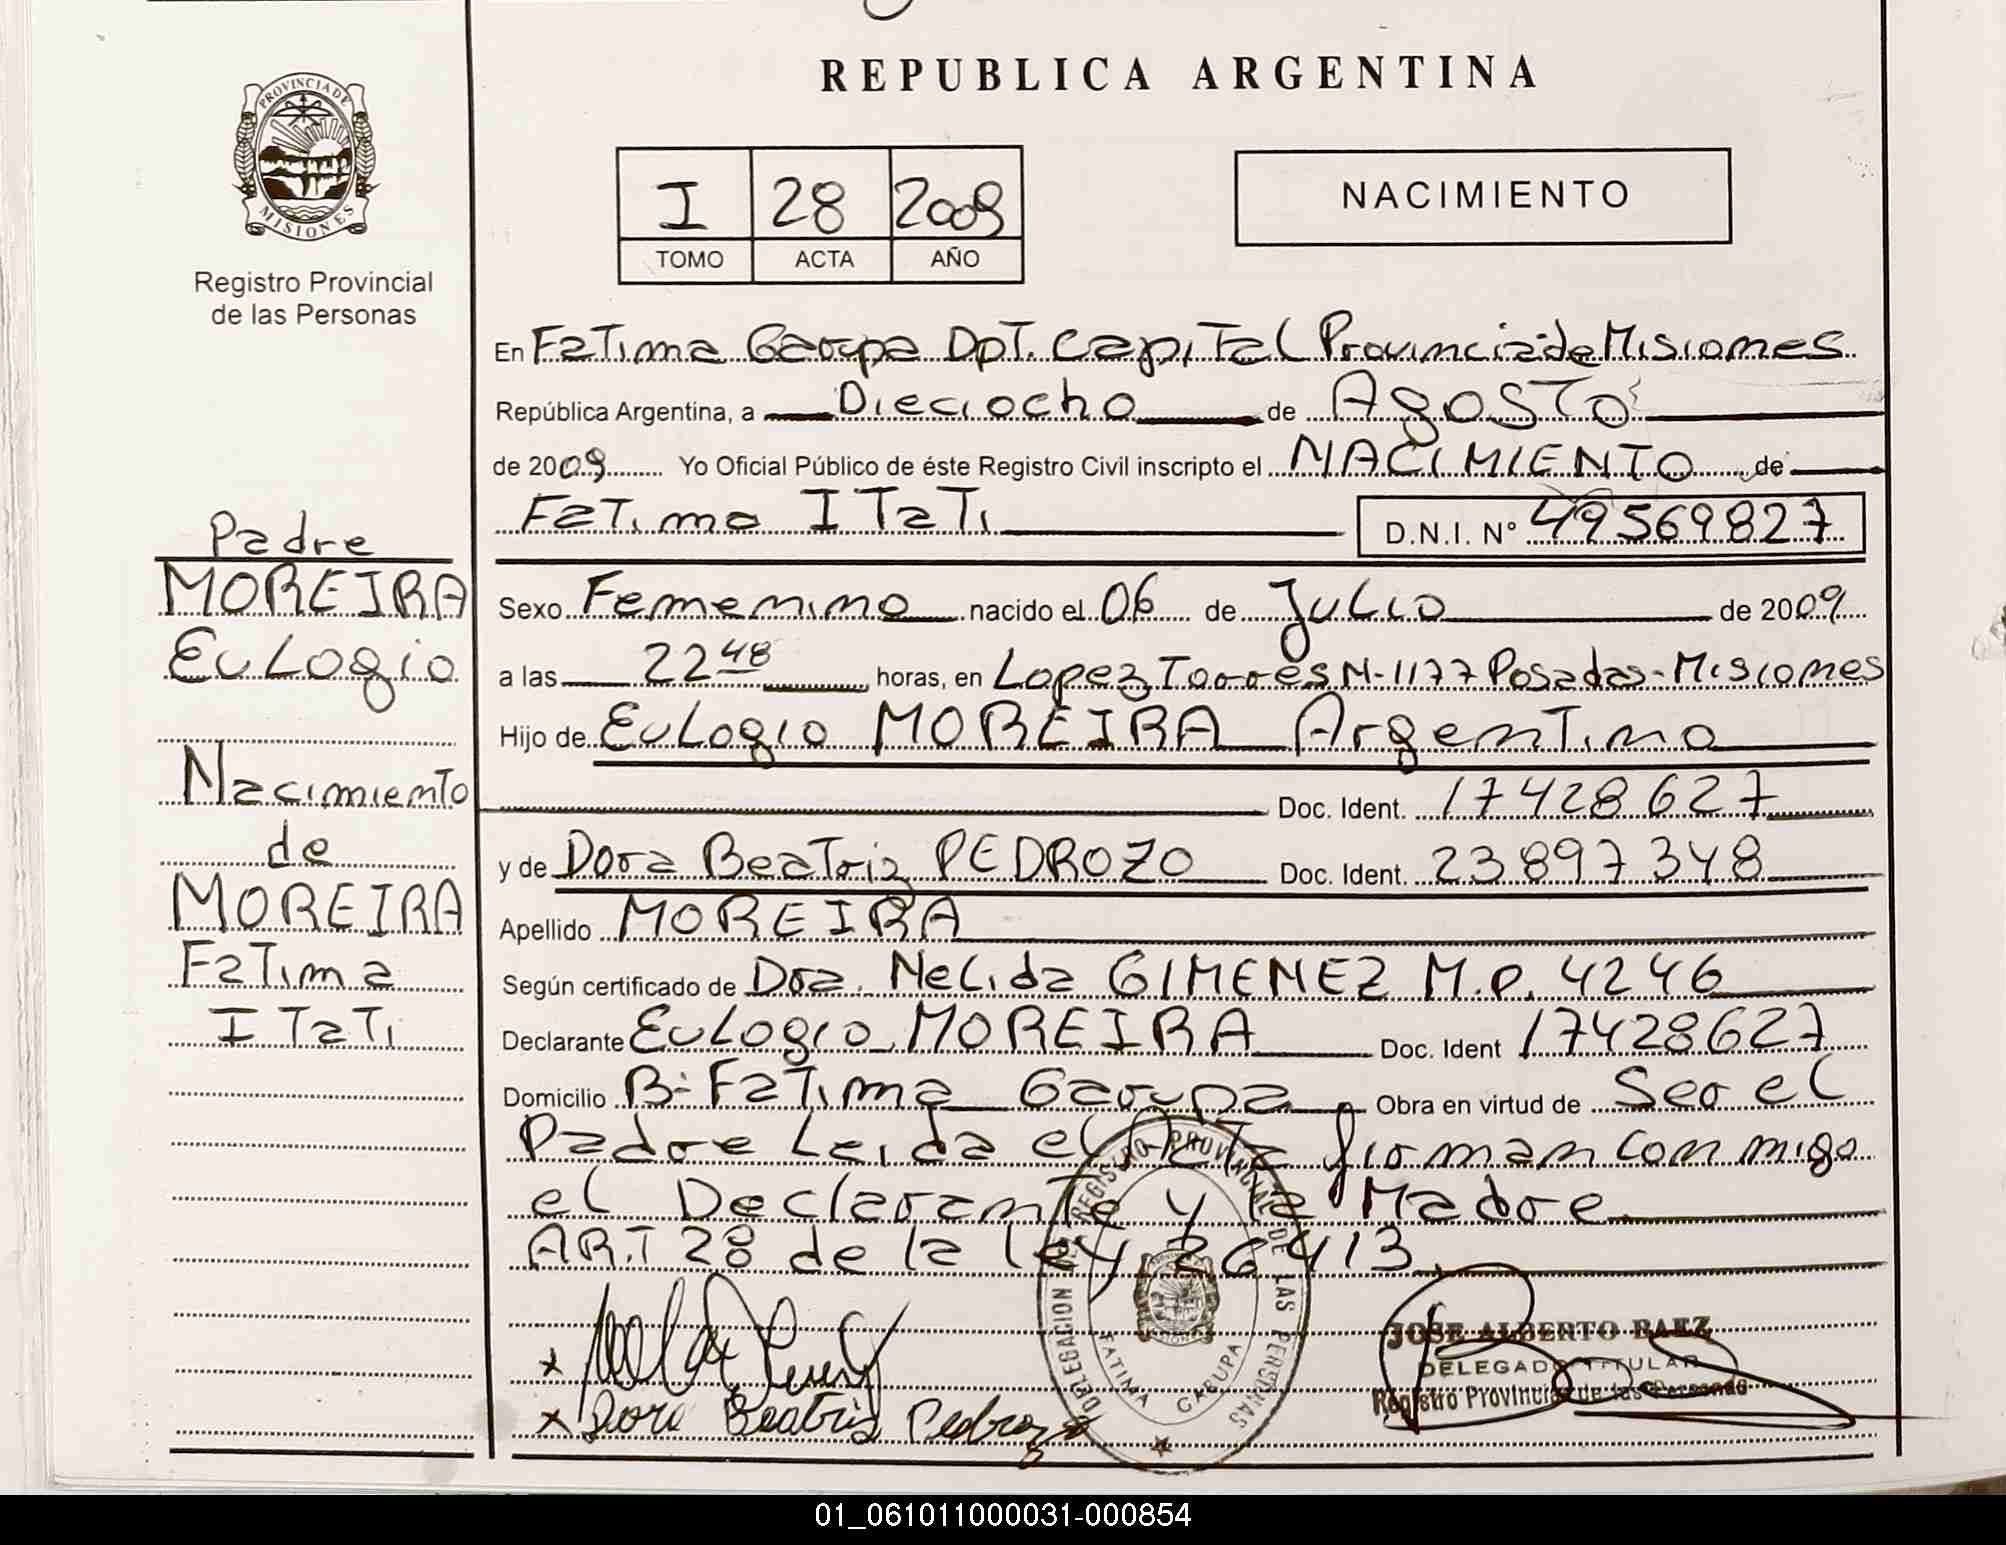 REPUBLICA ARGENTINA
PROVINCIA DE
MISIONES
Registro Provincial
de las Personas
I 28 2009
TOMO ACTA AÑO
NACIMIENTO
En Fatima Garupa Dpt. Capital Provincia de Misiones
República Argentina, a Dieciocho de Agosto
de 2009 Yo Oficial Público de éste Registro Civil inscripto el NACIMIENTO de
Fatima Itati D.N.I. Nº 49569827
Sexo Femenino nacido el 06 de Julio de 2009
a las 22 48 horas, en Lopez Torres N-1177 Posadas-Misiones
Hijo de Eulogio MOREIRA Argentino
Doc. Ident. 17428627
y de Dora Beatriz PEDROZO Doc. Ident. 23897348
Apellido MOREIRA
Según certificado de Dra. Nelida GIMENEZ M.P. 4246
Declarante Eulogio MOREIRA Doc. Ident 17428627
Domicilio B- Fatima Garupa Obra en virtud de Ser el
Padre Leida el Acta firman conmigo
el Declarante y la Madre
ART 28 de la Ley 26413.
Padre
MOREIRA
Eulogio
Nacimiento
de
MOREIRA
Fatima
Itati
DELEGACION DEL REGISTRO PROVINCIAL DE LAS PERSONAS
FATIMA GARUPA
x
x Dora Beatriz Pedrozo
JOSE ALBERTO BAEZ
DELEGADO TITULAR
Registro Provincial de las Personas
01_061011000031-000854